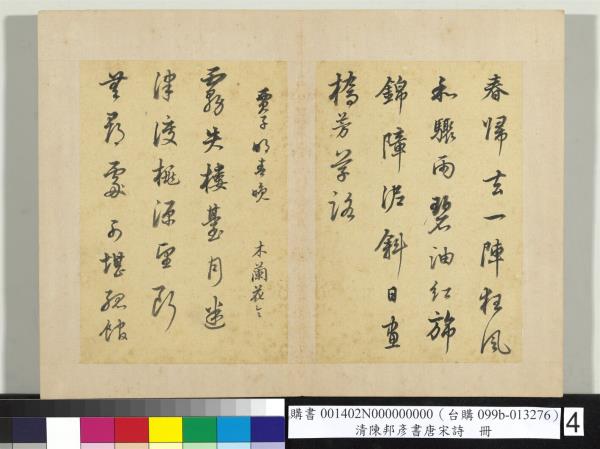 春歸去一陣狂風
和驟雨碧油紅旆
錦障泥斜日畫
橋芳草路
賈子明春晚 木蘭花令
霧失樓臺月迷
津渡桃源望斷
無尋處可堪孤館
購書 001402N000000000（台購 099b-013276）
清陳邦彥書唐宋詩 冊
4